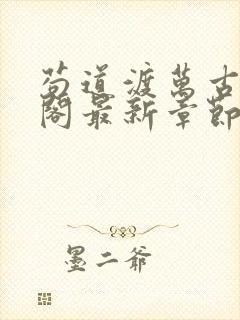 苟道渡萬古
閣最新章節
墨二爺